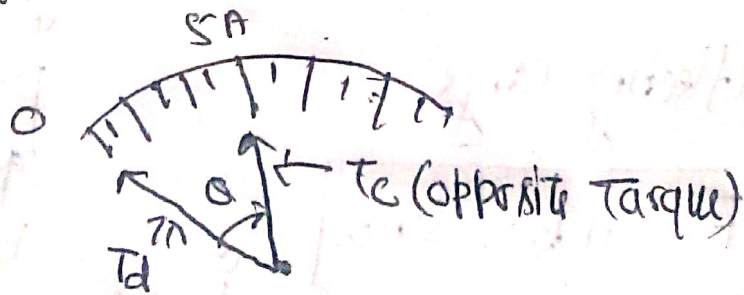 5A
O
θ
Tc (opposite Tarque)
Td